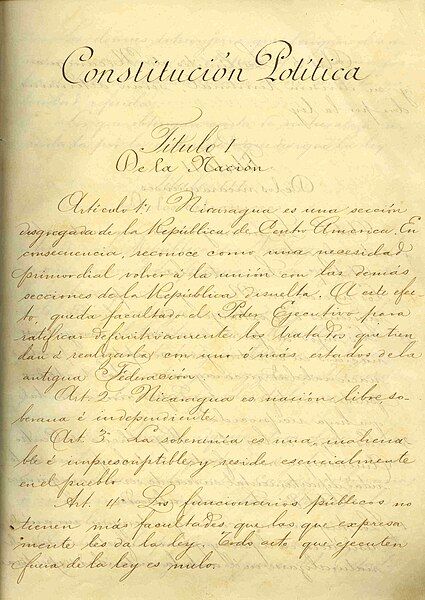 Constitución Política
Título 1
De la Nación
Artículo 1º Nicaragua es una sección
disgregada de la República de Centro América. En
consecuencia, reconoce como una necesidad
primordial volver á la unión con las demás
secciones de la República disuelta. A este efec-
to, queda facultado el Poder Ejecutivo para
ratificar definitivamente los tratados que tien-
dan á realizarla con uno ó más estados de la
antigua Federación
Art. 2º Nicaragua es nación libre, so-
berana é independiente
Art. 3º La soberanía es una, inaliena
ble é imprescriptible y reside esencialmente
en el pueblo
Art. 4º Los funcionarios públicos no
tienen más facultades que las que expresa
mente les da la ley. Todo acto que ejecuten
fuera de la ley es nulo.